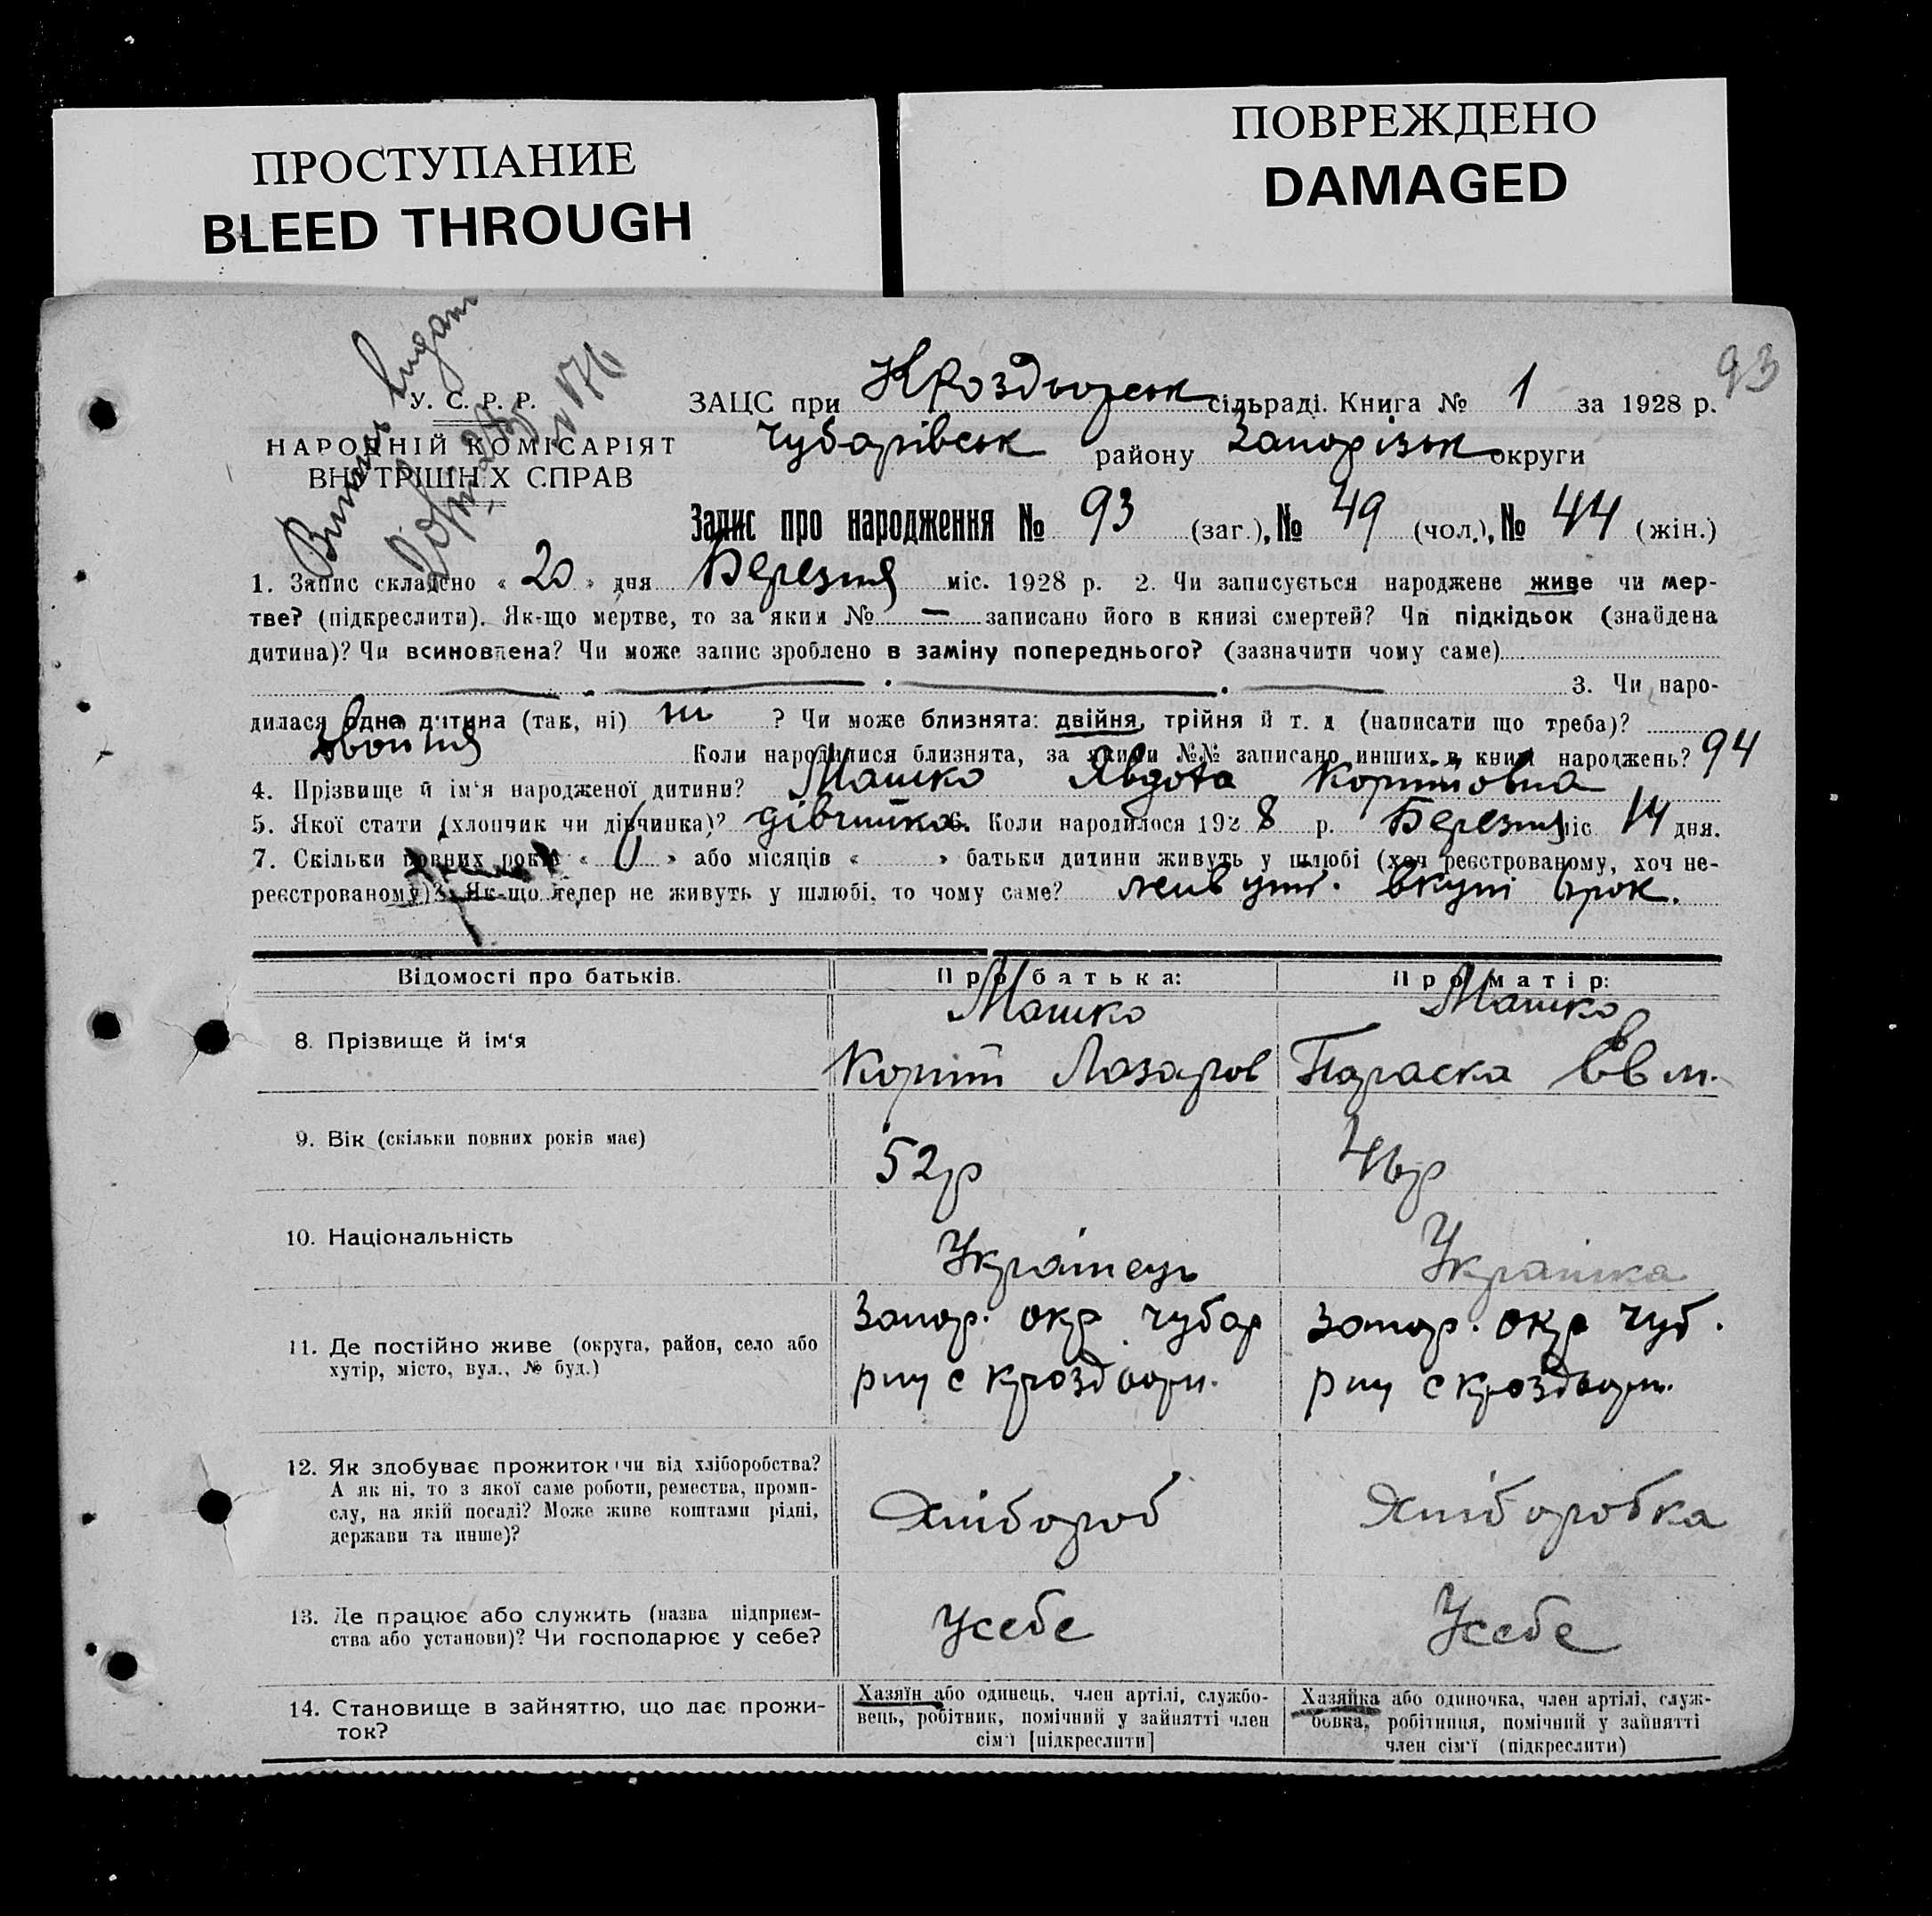 ПРОСТУПАНИЕ
BLEED THROUGH
ПОВРЕЖДЕНО
DAMAGED
93
У. С. Р. Р.
НАРОДНІЙ КОМІСАРІЯТ
ВНУТРІШНІХ СПРАВ
ЗАЦС при сільраді. Книга № 1 за 1928 р.
Чубарівськ району Запорізьк округи
Запис про народження № 93 (заг.), № 49 (чол.), № 44 (жін.)
1. Запис складено « 20 » дня Березня міс. 1928 р. 2. Чи записується народжене живе чи мер-
тве? (підкреслити). Як-що мертве, то за яким № — записано його в книзі смертей? Чи підкідьок (знайдена
дитина)? Чи всиновлена? Чи може запис зроблено в заміну попереднього? (зазначити чому саме)
3. Чи наро-
дилася одна дитина (так, ні) ні ? Чи може близнята: двійня, трійня й т. д (написати що треба)?
двойня Коли народилися близнята, за якими №№ записано инших в книзі народжень? 94
4. Прізвище й ім'я народженої дитини? Машко Явдота
5. Якої стати (хлопчик чи дівчинка)? дівчинка 6. Коли народилося 1928 р. Березня міс 14 дня.
7. Скільки повних років « » або місяців « » батьки дитини живуть у шлюбі (хоч реєстрованому, хоч не-
реєстрованому)? Як-що тепер не живуть у шлюбі, то чому саме? живуть вкупі
Відомості про батьків. Про батька: Про матір:
8. Прізвище й ім'я
Машко
Лазаров
Машко
Параска
9. Вік (скільки повних років має) 52р 46р
10. Національність Українець Українка
11. Де постійно живе (округа, район, село або
хутір, місто, вул., № буд.)
Запор. окр чубар
Запор. окр Чуб.
12. Як здобуває прожиток чи від хліборобства?
А як ні, то з якої саме роботи, ремества, проми-
слу, на якій посаді? Може живе коштами рідні,
держави та инше)?
Хлібороб
Хліборобка
13. Де працює або служить (назва підприєм-
ства або установи)? Чи господарює у себе?
Усебе
Усебе
14. Становище в зайняттю, що дає прожи-
ток?
Хазяїн або одинець, член артілі, службо-
вець, робітник, помічний у зайнятті член
сім'ї [підкреслити]
Хазяйка або одиночка, член артілі, служ-
бовка, робітниця, помічний у зайнятті
член сім'ї (підкреслити)